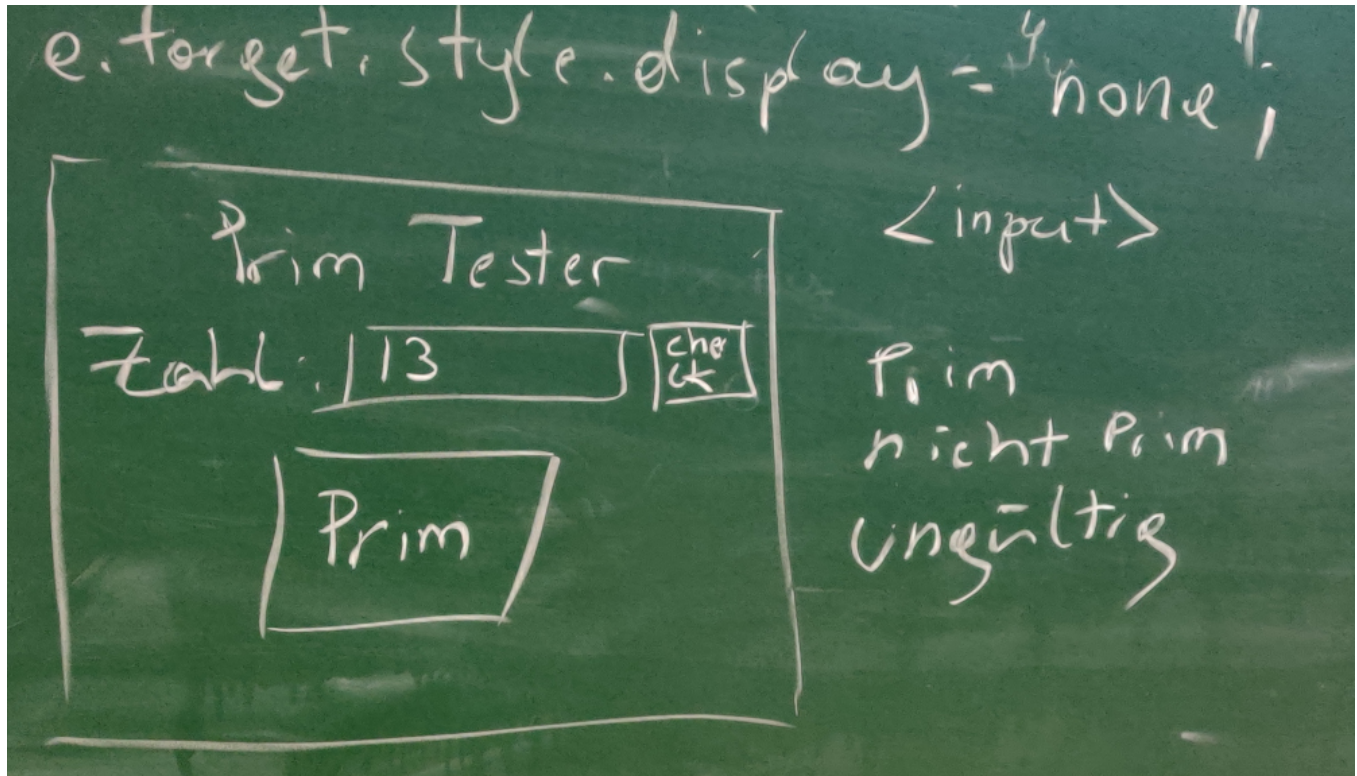 e.target.style.display = "none";
<input>
Prim Tester
Zahl: 13
che
ck
Prim
Prim
nicht Prim
ungültig